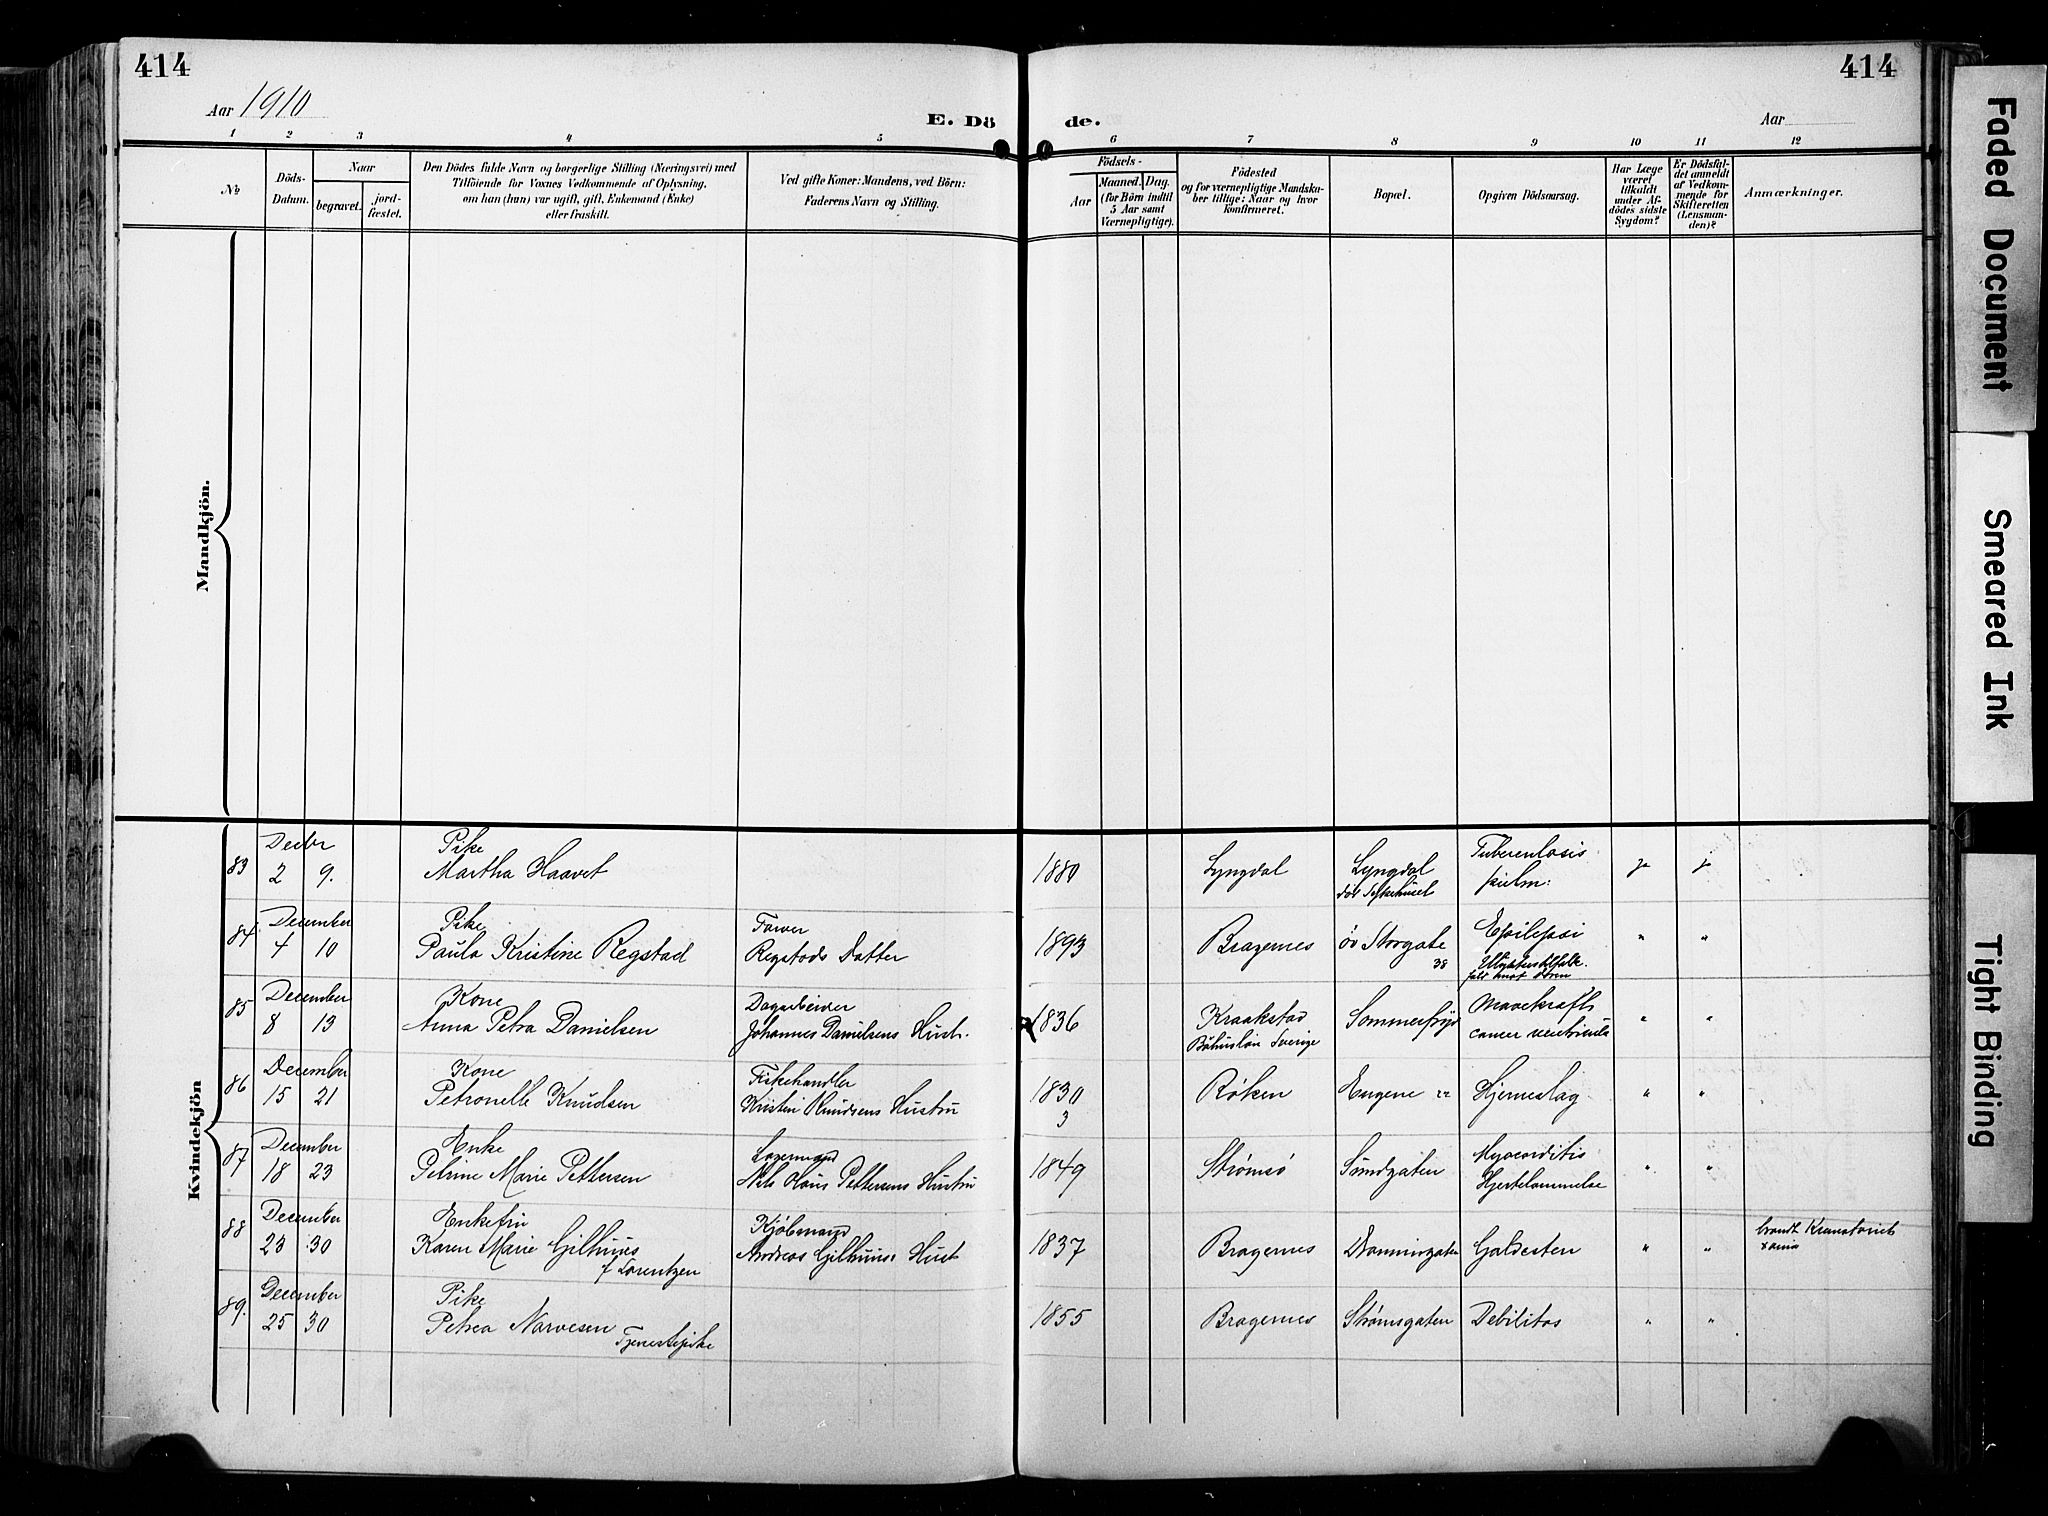 414
414
Aar 1910
E. Dö
de.
Aar
1 2 3 4 5 6 7 8 9 10 11 12
No
Döds-
Datum.
Naar
begravet.
jord-
fæstet.
Den Dödes fulde Navn og borgerlige Stilling (Næringsvei) med
Tilföiende for Voxnes Vedkommende af Oplysning,
om han (hun) var ugift, gift, Enkemand (Enke)
eller fraskilt.
Ved gifte Koner: Mandens, ved Börn:
Faderens Navn og Stilling.
Födsels-
Aar
Maaned. Dag.
(for Börn indtil
5 Aar samt
Værnepligtige).
Födested
og for værnepligtige Mandska-
ber tillige: Naar og hvor
konfirmeret.
Bopæl.
Opgiven Dödsaarsag.
Har Læge
været
tilkaldt
under Af-
dödes sidste
Sygdom?
Er Dödsfal-
det anmeldt
af Vedkom-
mende for
Skifteretten
(Lensman-
den)?
Anmærkninger.
Mandkjön.
Kvindekjön
83 Decbr 2 9. Pike
Martha Haavet
1880 Lyngdal Lyngdal
Tuberculosis
pulm: ja ja
84. December 4 10 Pike
Paula Kristine Regstad
Farver
Regstads Datter
1893 Bragernes øv Storgate
38
Epilepsi
" "
85 December 8 13 Kone
Anna Petra Danielsen
Dagarbeider
Johannes Danielsens Hust.
1836 Kraakstad
Båhuslän Sverige
Sommerfryd
Mavekræft
cancer ventriculi
" "
86 December 15 21 Kone
Petronelle Knudsen
Fiskehandler
Kristen Knudsens Hustru
1830
3
Røken Engene 22 Hjerneslag " "
87 December 18 23 Enke
Petrine Marie Pettersen
Nils Hans Pettersens Hustru
1849 Strømsø Sundgaten
Myocarditis
Hjertelammelse
" "
88 December 23 30 Enkefru
Karen Marie Gilhuus
f Lorentzen
Kjøbmand
Andreas Gilhuus: Hust
1837 Bragernes Galdesten " "
89. December 25 30 Pike
Petrea Narvesen
Tjenestepike
1855 Bragernes Strømsgaten Debilitas " "
Faded Document
Smeared Ink
Tight Binding